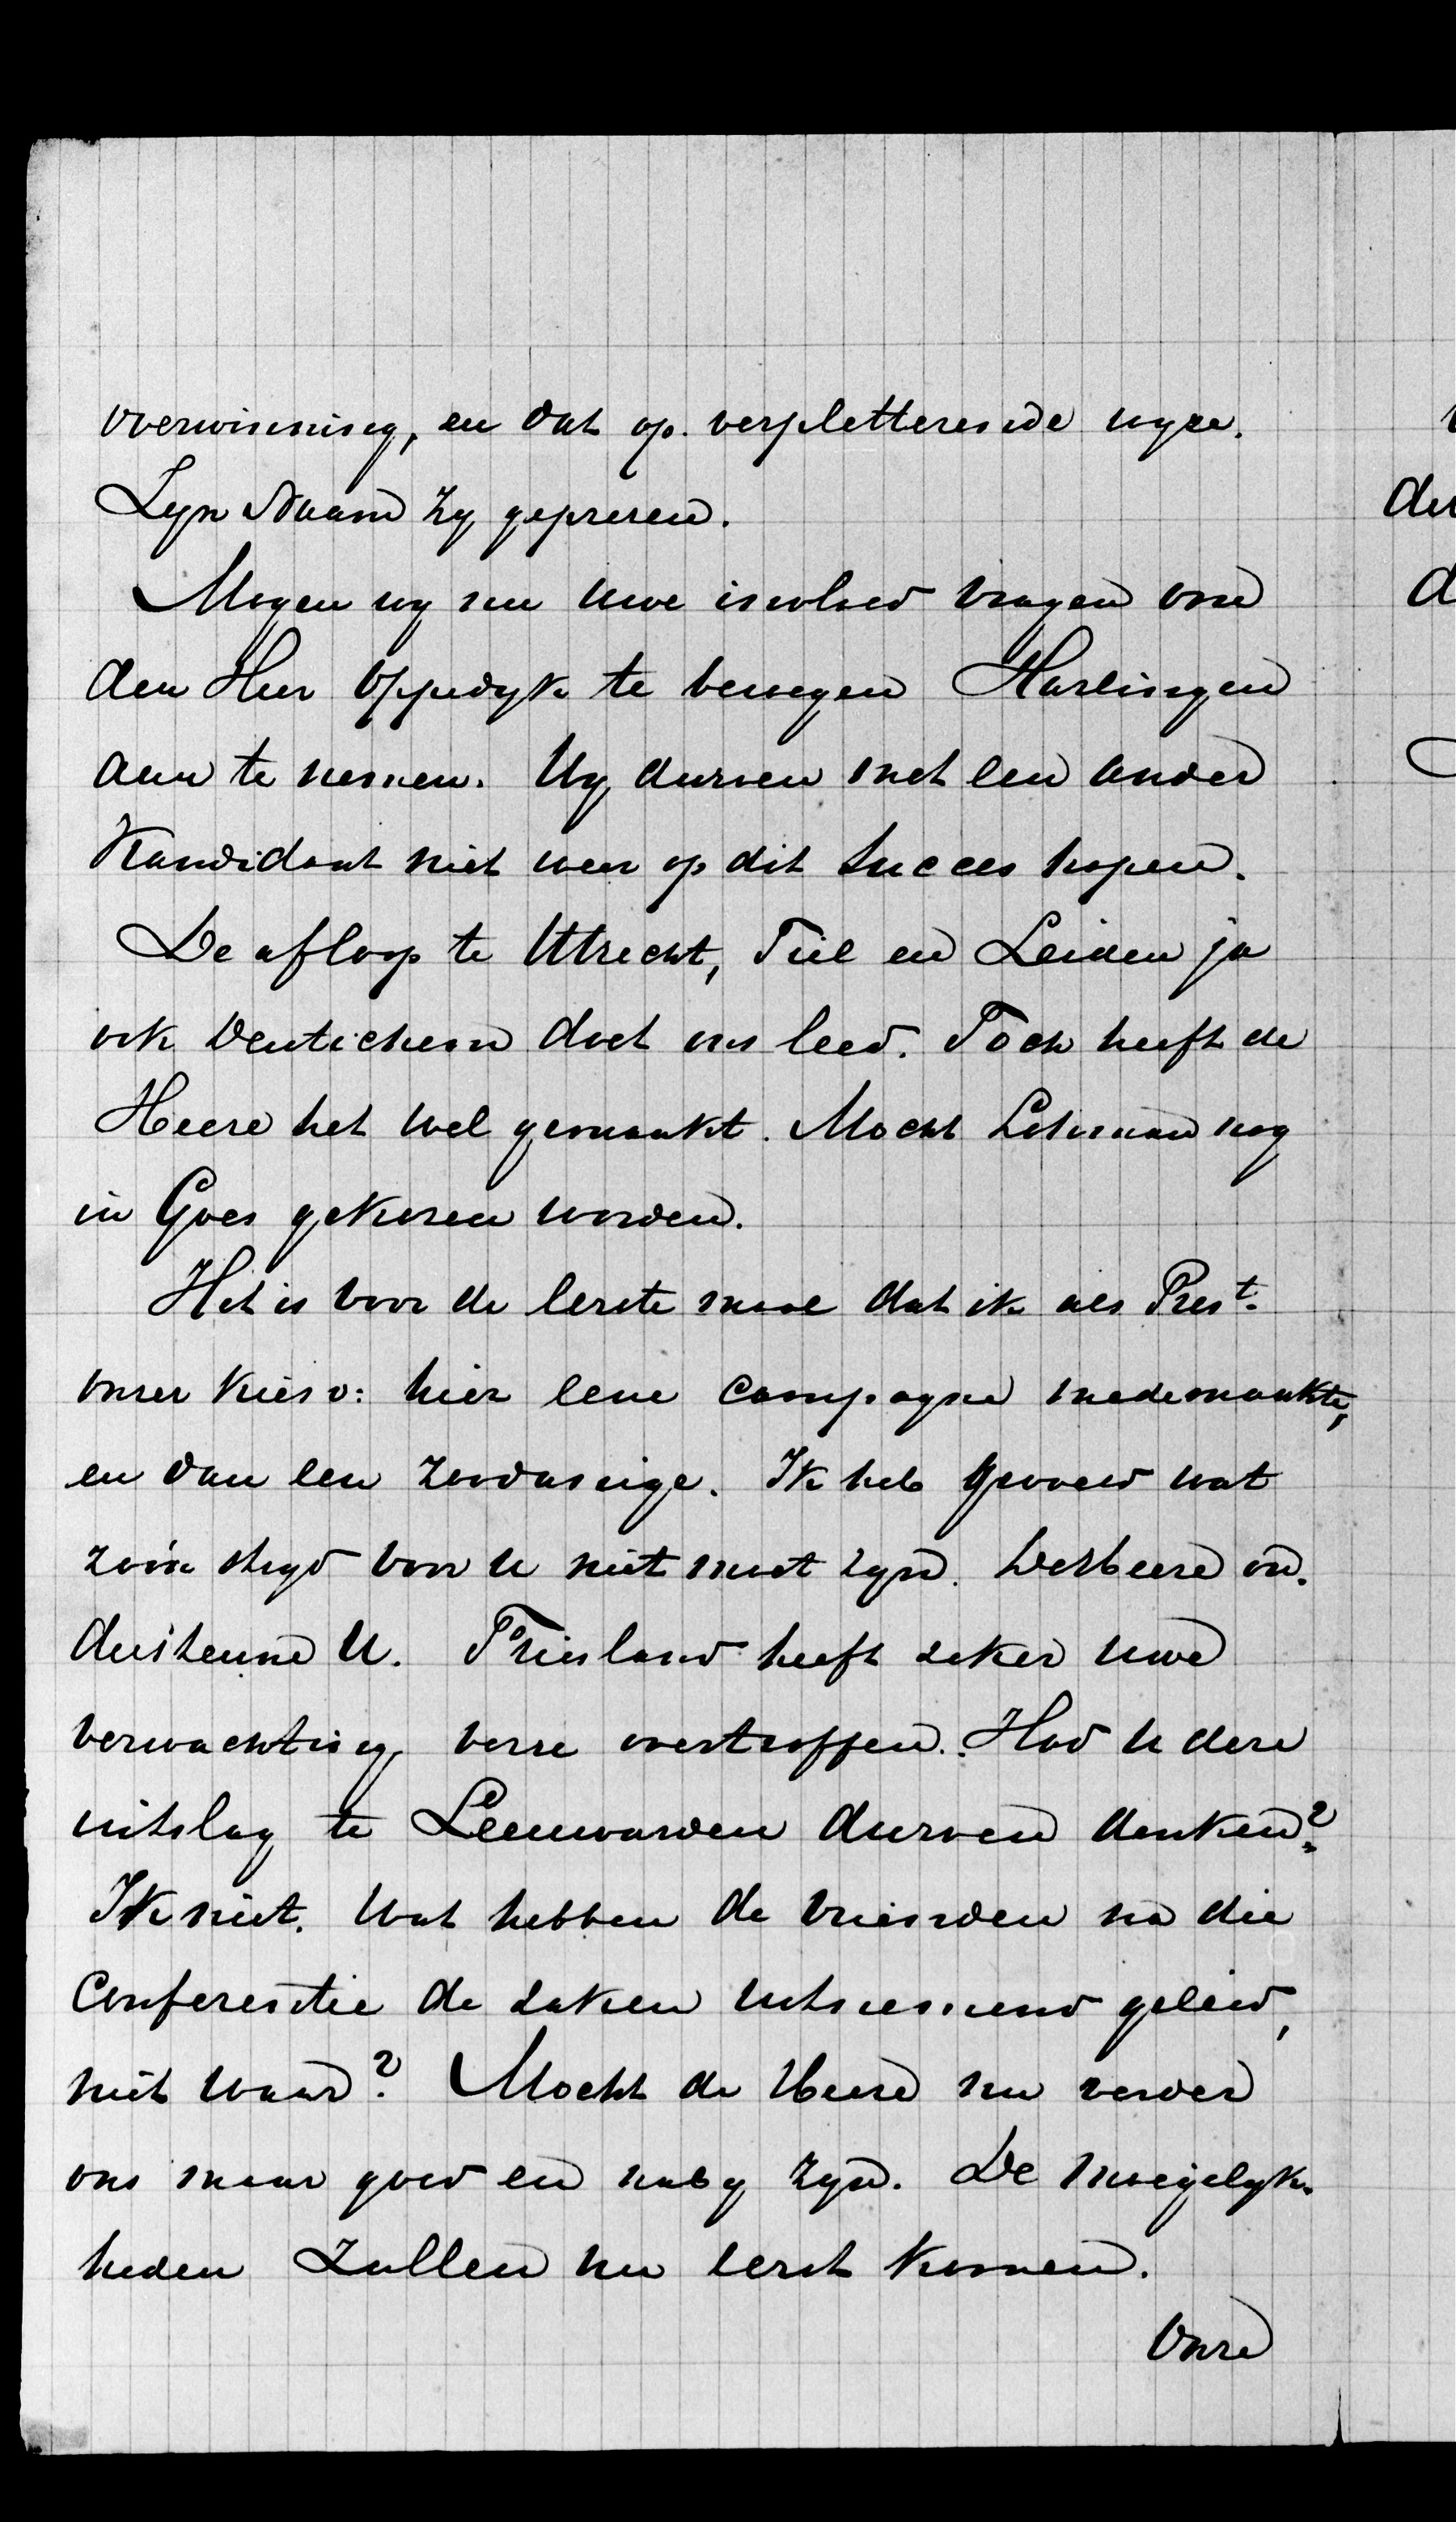 overwinning, en dat op verpletterende wyze.
Zyn Naam zy geprezen.
Mogen wy nu uwe invloed vragen om
den Heer Oppedyk te bewegen Harlingen
aan te nemen. Wy durven met een ander
Kandidaat niet weer op dit succes hopen.
De afloop te Utrecht, Tiel en Leiden ja
ook Deutichem doet ons leed. Toch heeft de
Heere het wel gemaakt. Mocht Lohman nog
in Goes gekozen worden.
Het is voor de eerste maal dat ik als Prest.
onzer Kiesv: hier eene campagne medemaakte,
en dan een zoodanige. Ik heb gevoeld wat
zoo'n stryd voor U niet moet zyn. De Heere on-
dersteune U. Friesland heeft zeker uwe
verwachting verre overtroffen. Had U deze
uitslag te Leeuwarden durven denken?
Ik niet. Wat hebben de vrienden na die
Conferentie de zaken uitnemend geleid,
niet waar? Mocht de Heere nu verder
ons maar goed en naby zyn. De moeijelyk-
heden zullen nu eerst komen.
Onze